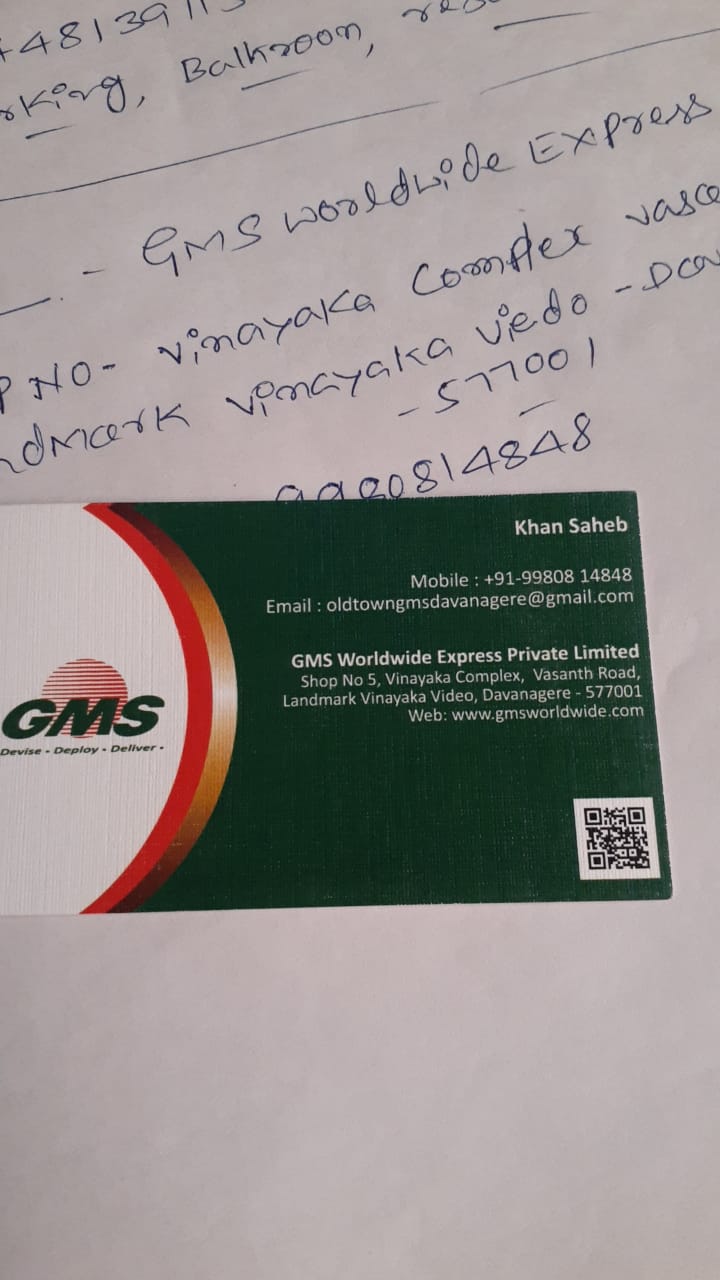 +481391
rking, Balkroon,
- GMS Worldwide Express
P NO- Vinayaka Complex vasa
ndmark vinayaka viedo - Dav
- 577001
9980814848
Khan Saheb
Mobile : +91-99808 14848
Email : oldtowngmsdavanagere@gmail.com
GMS Worldwide Express Private Limited
Shop No 5, Vinayaka Complex, Vasanth Road,
Landmark Vinayaka Video, Davanagere - 577001
Web: www.gmsworldwide.com
GMS
Devise - Deploy - Deliver -